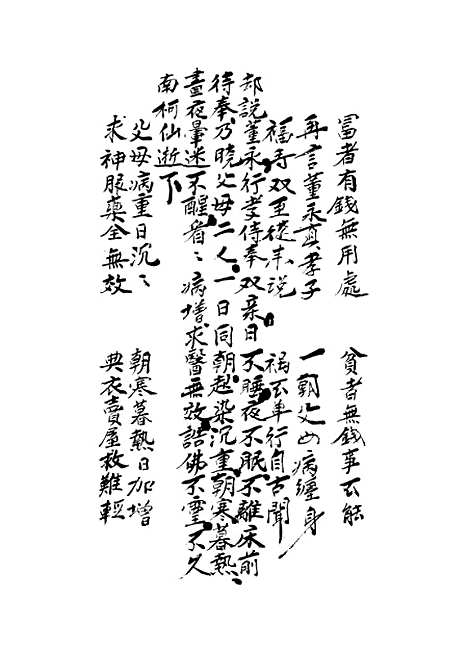 富者有錢無用處 貧者無錢事不能
再言董永真孝子 一朝父母病纏身
福壽双至從来说 禍不单行自古聞
却說董永行孝侍奉双亲日不睡夜不眠不離床前
待奉乃曉父母二人一日同朝起染沉重朝寒暮熱
晝夜暈迷不醒看〻病增求醫無效請佛不靈不久
南柯仙逝下
父母病重日沉〻 朝寒暮熱日加增
求神服藥全無效 典衣賣屋救難輕